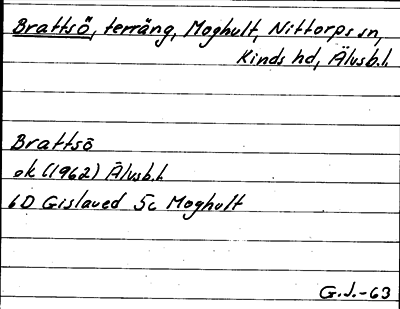 Brattsö, terräng, Moghult, Nittorps sn,
Kinds hd, Älvsb.l.
Brattsö
ek (1962) Älvsb.l.
6D Gislaved 5c Moghult
G.J.-63